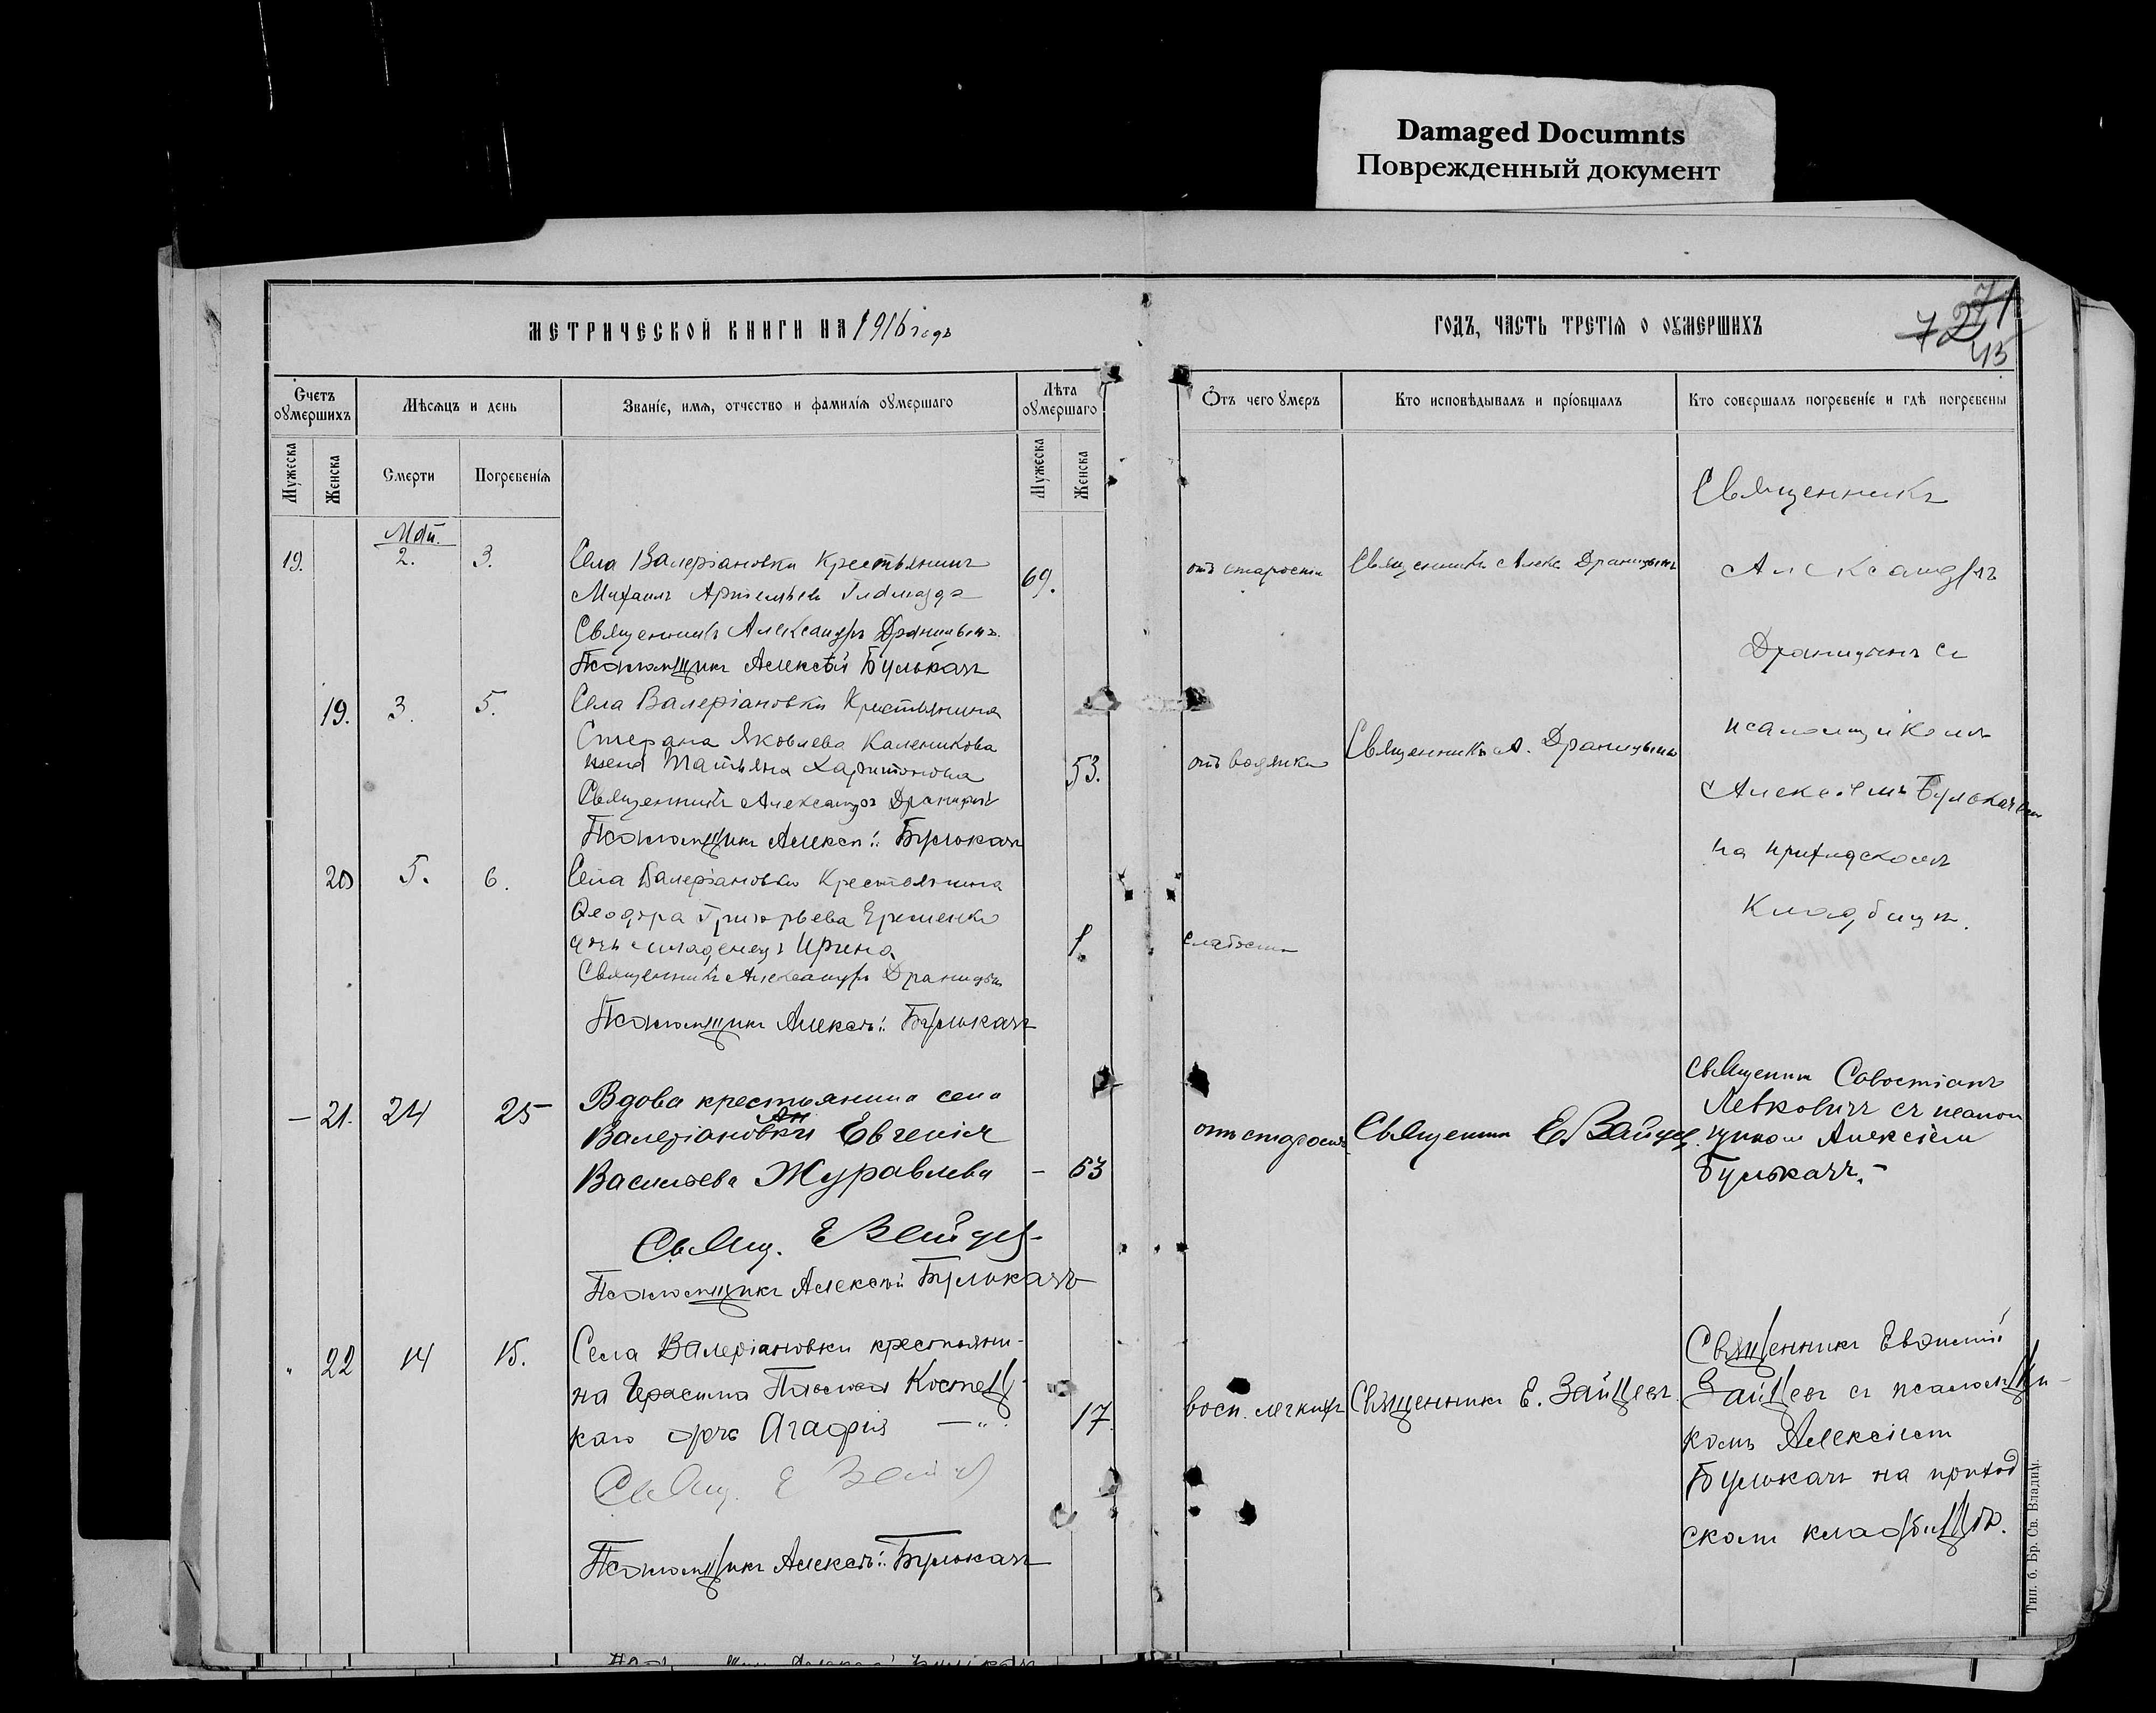 Damaged Documnts
Поврежденный документ
МЕТРИЧЕСКОЙ КНИГИ НА 1916 годъ
ГОДЪ, ЧАСТЬ ТРЕТІЯ О ОУМЕРШИХЪ
71
72
43
Счетъ оумершихъ
Мѣсяцъ и день
Званіе, имя, отчество и фамилія оумершаго
Лѣта оумершаго
Отъ чего умеръ
Кто исповѣдывалъ и пріобщалъ
Кто совершалъ погребеніе и гдѣ погребены
Мужеска
Женска
Смерти
Погребенія
Мужеска
Женска
Май.
19.
2.
3.
Села Валеріановки Крестьянинъ
Михаилъ
Священникъ Александръ Драницынъ.
Псаломщикъ Алексѣй Булькачъ
69.
отъ старости
Священникъ Алекс Драницынъ
Священникъ
Александръ
Драницынъ съ
псаломщикомъ
Алексѣемъ Булькачемъ
на приходскомъ
Кладбищѣ.
19.
3.
5.
Села Валеріановки Крестьянина
Стефана Яковлева Каленикова
жена Татьяна Харитонова
Священникъ Александръ Драницынъ
Псаломщикъ Алексѣй Булькачъ
53.
отъ водянки
Священникъ А. Драницынъ
20
5.
6.
Села Валеріановки Крестьянина
Ѳеодора Григорьева Еременко
дочь младенецъ Ирина
Священникъ Александръ Драницынъ
Псаломщикъ Алексѣй Булькачъ
1.
слабости
— 21.
24
25
Вдова крестьянина села
Валеріановки Евгенія
Васильева Журавлева
Свящ. Е Зайцев
Псаломщикъ Алексѣй Булькачъ
— 63
отъ старости
Священник Е Зайцев.
Священник Савостіанъ
Левковичъ съ псалом
щиком Алексіем
Булькачъ.-
" 22
14
15.
Села Валеріановки крестьяни-
на Герасима Костец-
каго дочь Агафія — " .
Свящ. Е Зайцев
Псаломщикъ Алексѣй Булькачъ
17.
восп. легкихъ
Священникъ Е. Зайцевъ.
Священникъ Евѳимій
Зайцевъ съ псаломщи-
комъ Алексіем
Булькачъ на приход
ском кладбищѣ.
Тип. б. Бр. Св. Владим.